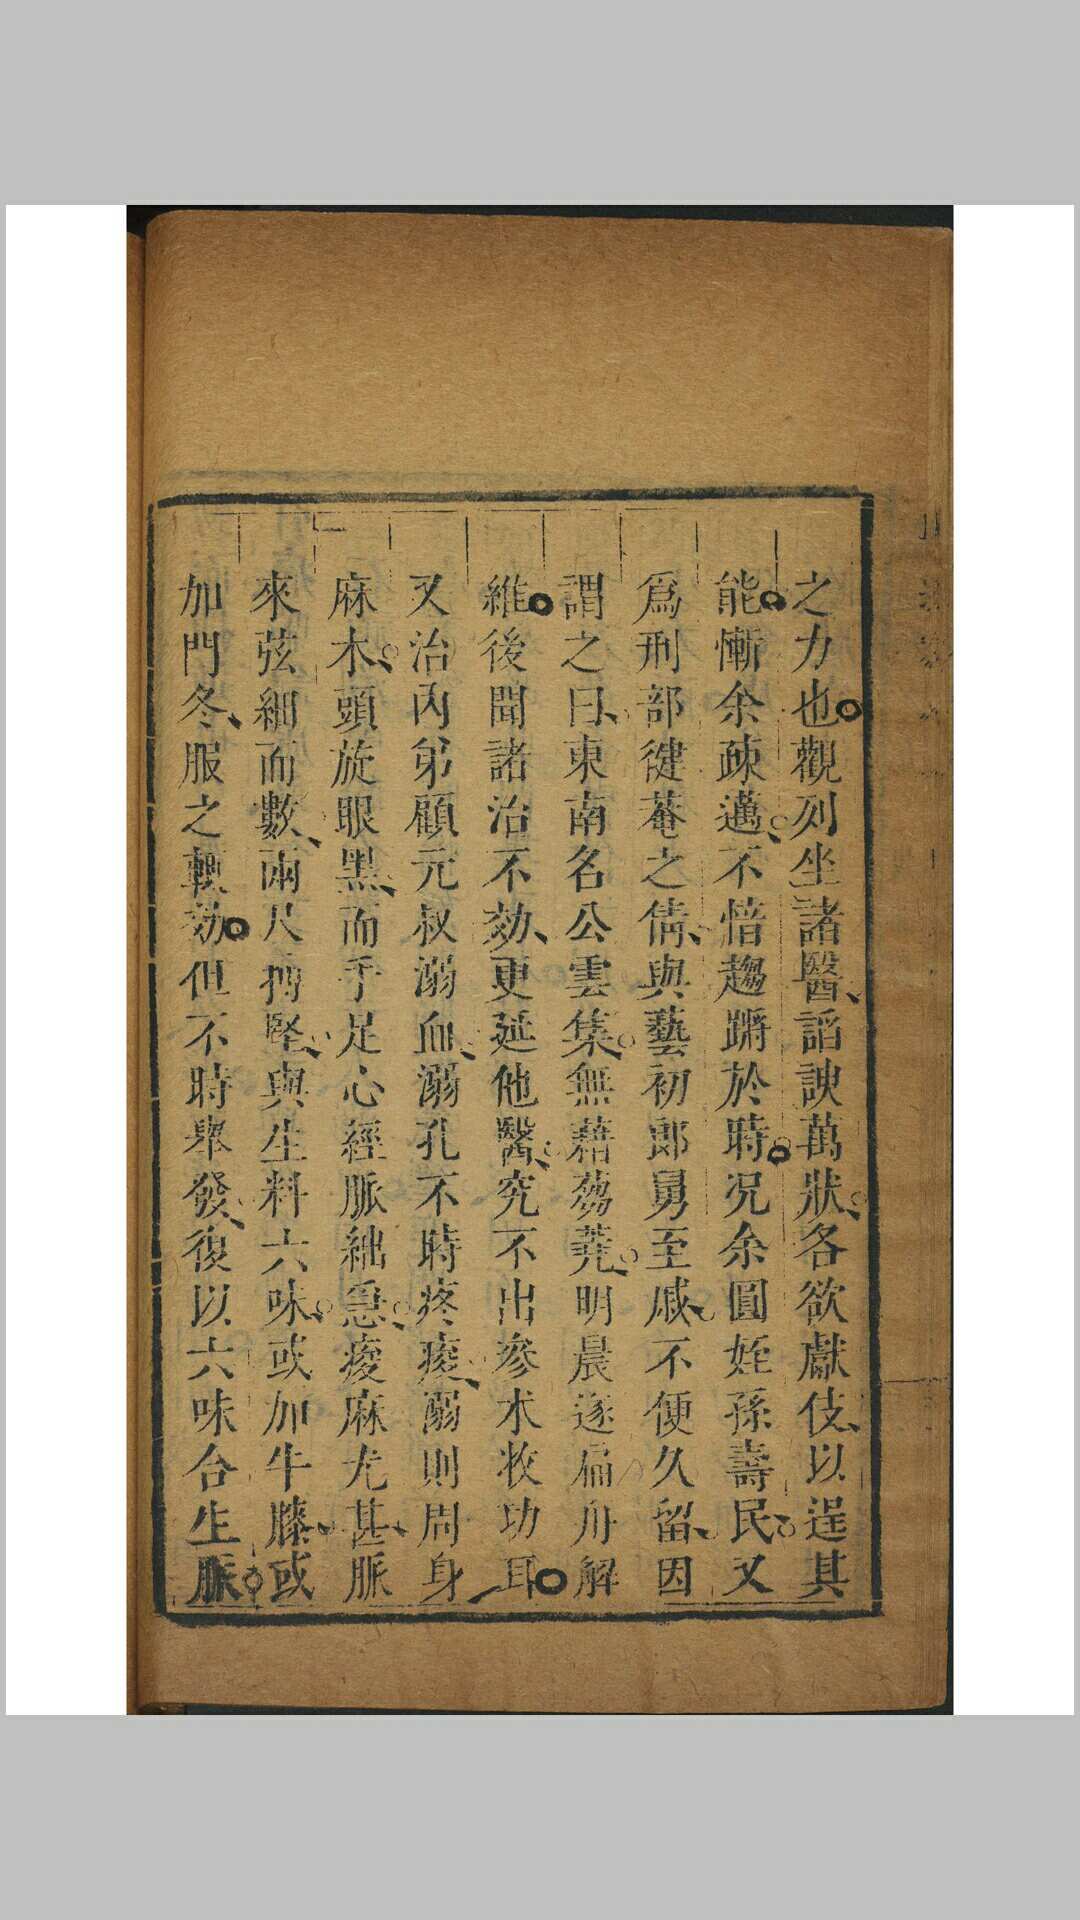 之力也觀列坐諸醫謟諛萬狀各欲獻伎以逞其
能慚余疎邁不惜趨蹡於時况余圓姪孫壽民又
爲刑部健菴之倩與藝初郎舅至戚不便久留因
謂之曰東南名公雲集無藉蒭蕘明晨遂扁舟解
維後聞諸治不効更延他醫究不出參朮收功耳
又治內弟顧元叔溺血溺孔不時疼痠溺則周身
麻木頭旋眼黑而手足心經脈絀急痠麻尤甚脈
來弦細而數兩尺搏堅與生料六味或加牛膝或
加門冬服之輙効但不時舉發復以六味合生脈